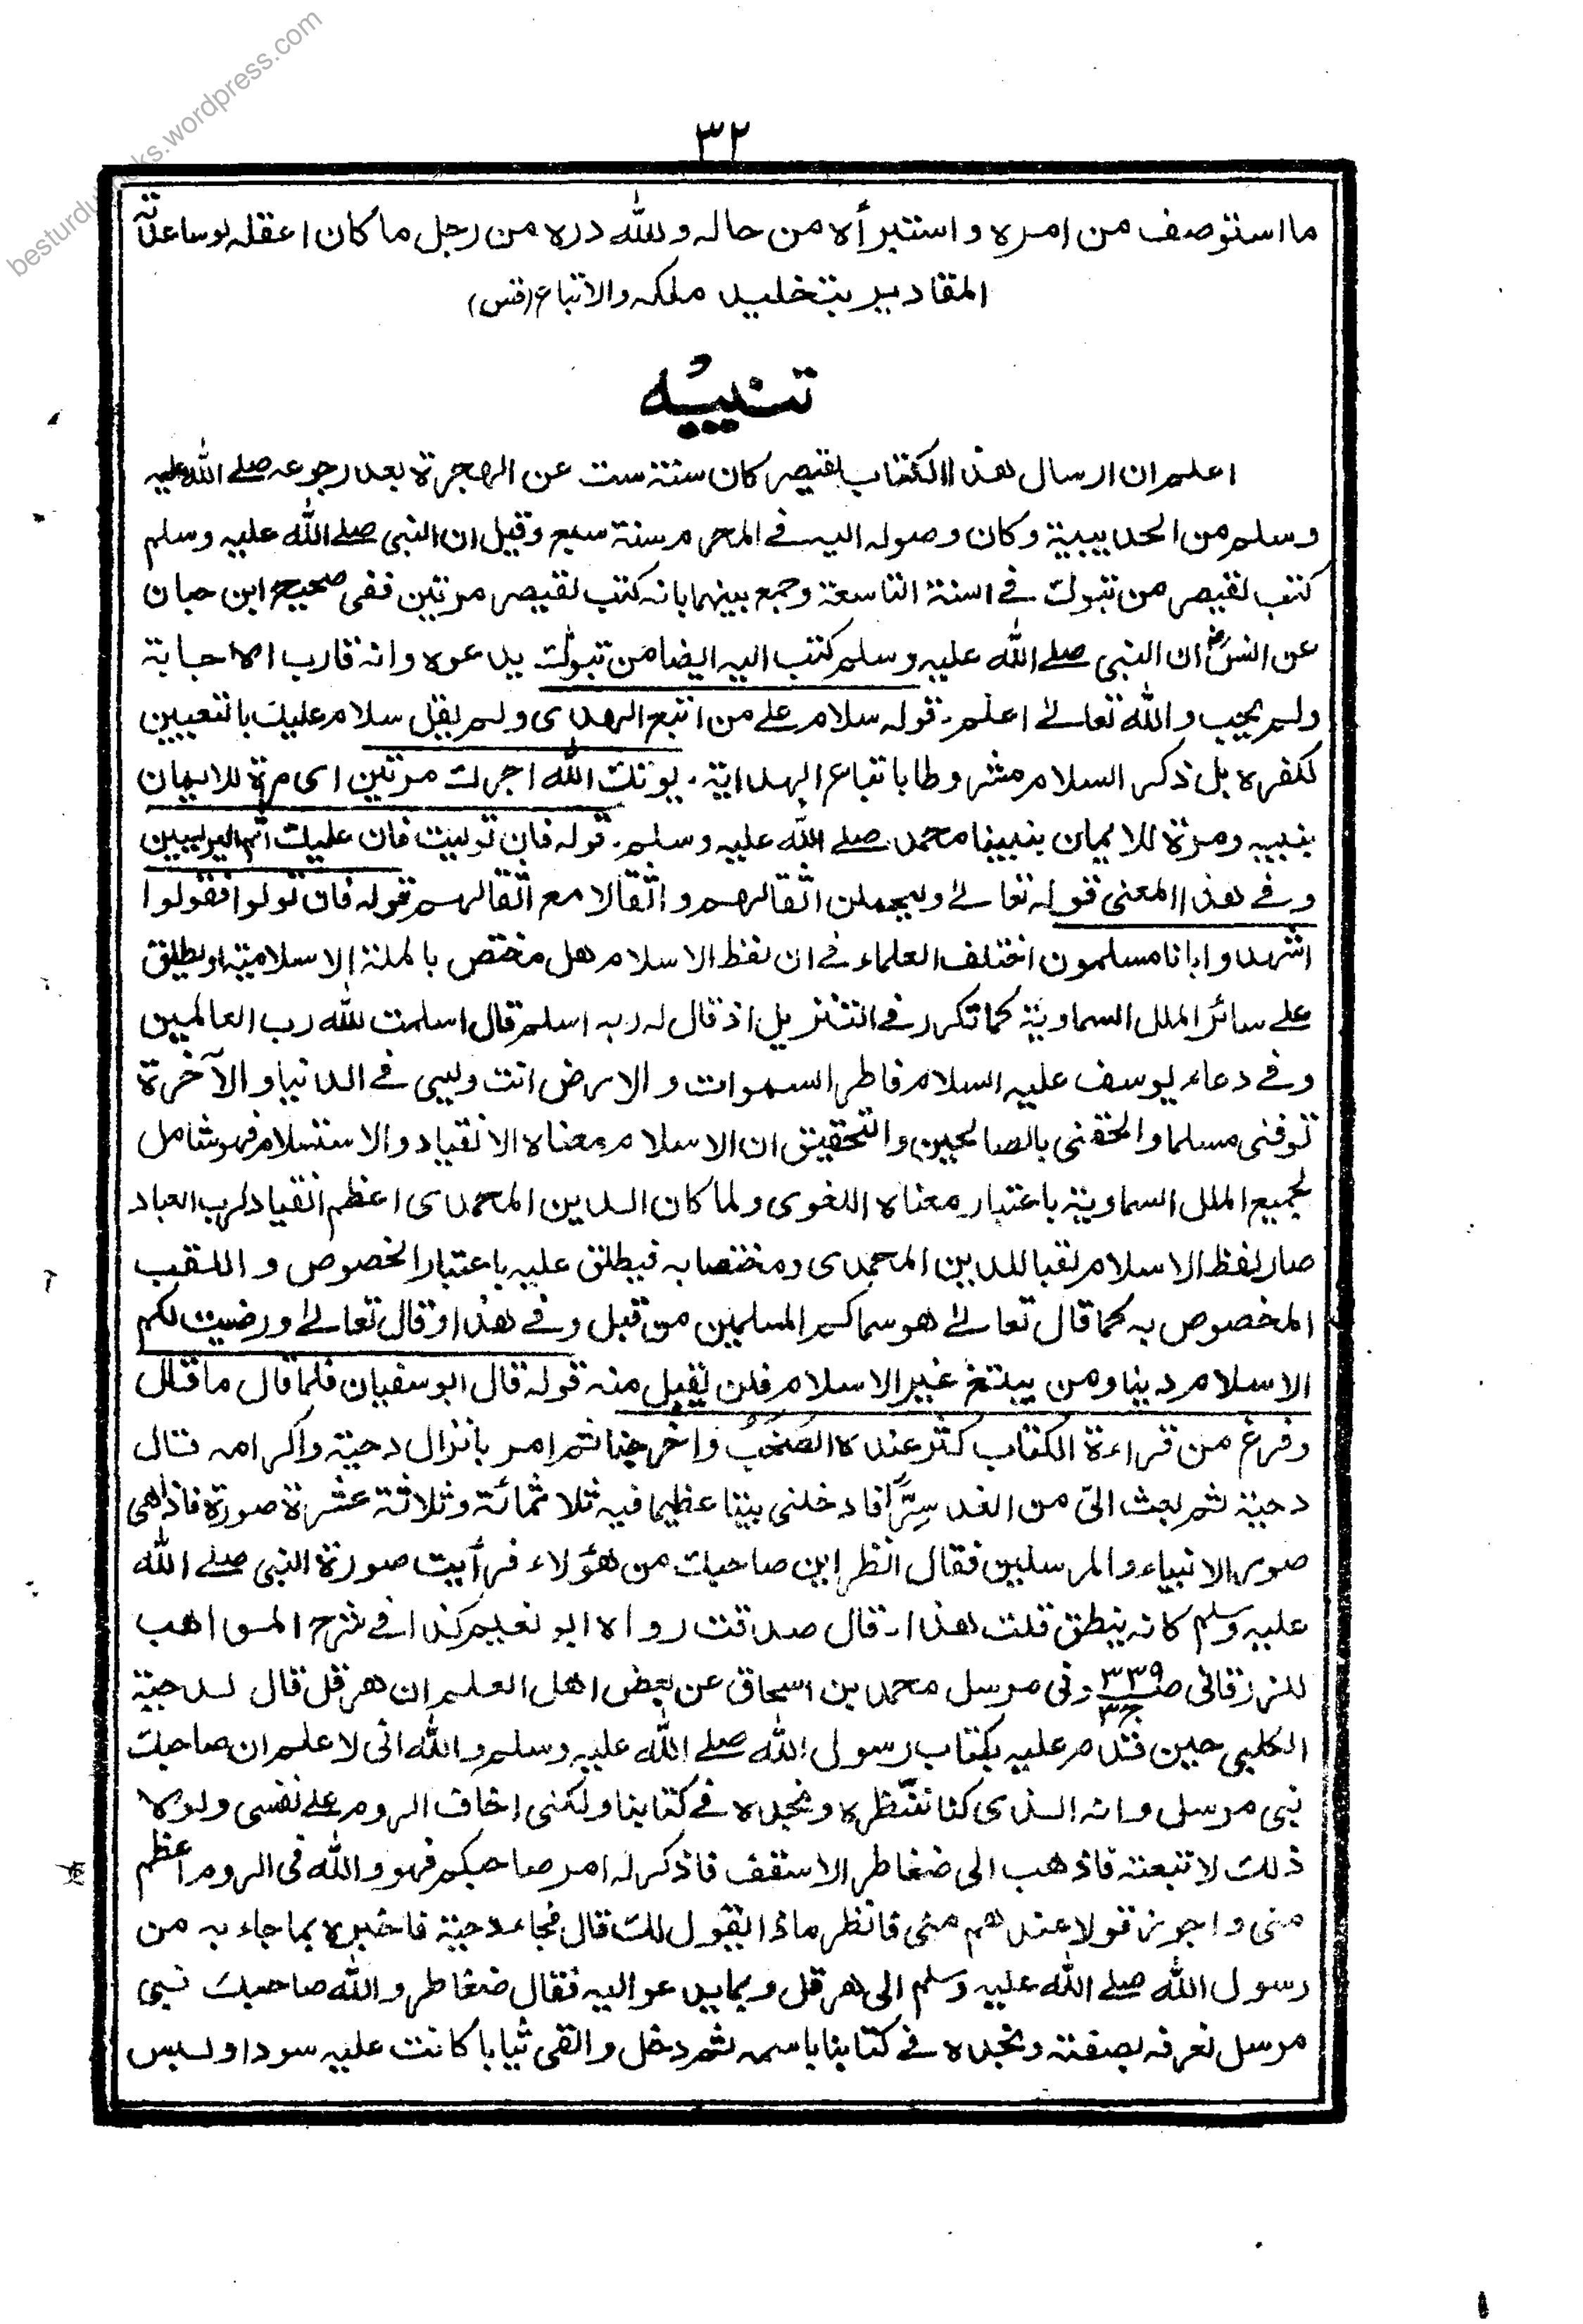 besturdubooks.wordpress.com
٣٢
ما استوصف من امره و استبرأه من حاله و لله دره من رجل ما كان اعقله لو ساعدته
المقادير بتخليد ملكه والاتباع (قس)
تنبيه
اعلم ان ارسال هذا الكتاب لقيصر كان سنة ست عن الهجرة بعد رجوعه صلے الله عليه
وسلم من الحديبية وكان وصوله اليه فے المحرم سنة سبع وقيل ان النبى صلے الله عليه وسلم
كتب لقيصر من تبوك فے السنة التاسعة وجمع بينهما بانه كتب لقيصر مرتين ففى صحيح ابن حبان
عن انسؓ ان النبى صلے الله عليه وسلم كتب اليه ايضا من تبوك يدعوه وانه قارب الاجابة
ولم يجب والله تعالےٰ اعلم. قوله سلام علے من اتبع الهدى ولم يقل سلام عليك بالتعيين
لكفره بل ذكر السلام مشروطا باتباع الهداية. يؤتك الله اجرك مرتين اى مرة للايمان
بنبيه ومرة للايمان بنبينا محمد صلے الله عليه وسلم. قوله فان توليت فان عليك اثم اليريسيين
وفے هذا المعنى قوله تعالےٰ وليحملن اثقالهم و اثقالا مع اثقالهم قوله فان تولوا فقولوا
اشهدوا بانا مسلمون اختلف العلماء فے ان لفظ الاسلام هل مختص بالملة الاسلامية او يطلق
علے سائر الملل السماوية كما تكرر فے التنزيل اذ قال له ربه اسلم قال اسلمت لله رب العالمين
وفے دعاء يوسف عليه السلام فاطر السموات و الارض انت وليى فے الدنيا و الآخرة
توفنى مسلما والحقنى بالصالحين والتحقيق ان الاسلام معناه الانقياد والاستسلام فهو شامل
لجميع الملل السماوية باعتبار معناه اللغوى ولما كان الدين المحمدى اعظم انقياد لرب العباد
صار لفظ الاسلام لقبا للدين المحمدى ومختصا به فيطلق عليه باعتبار الخصوص و اللقب
المخصوص به كما قال تعالےٰ هو سماكم المسلمين من قبل وفے هذا وقال تعالےٰ ورضيت لكم
الاسلام دينا ومن يبتغ غير الاسلام فلن يقبل منه قوله قال ابوسفيان فلما قال ما قال
وفرغ من قراءة الكتاب كثر عنده الصخب واخرجنا ثم امر بانزال دحية واكرامه قال
دحية ثم بعث الىّ من الغد سِرًّا فادخلنى بيتا عظيما فيه ثلاثمائة وثلاثة عشرة صورة فاذا هى
صور الانبياء والمرسلين فقال انظر اين صاحبك من هؤلاء فرأيت صورة النبى صلے الله
عليه وسلم كانه ينطق قلت هذا. قال صدقت رواه ابو نعيم كذا فے شرح المواهب
للزرقانى ص ٣٣٩ ج ٣ وفى مرسل محمد بن اسحاق عن بعض اهل العلم ان هرقل قال لدحية
الكلبى حين قدم عليه بكتاب رسول الله صلے الله عليه وسلم والله انى لاعلم ان صاحبك
نبى مرسل وانه الذى كنا ننتظره ونجده فے كتابنا ولكنى اخاف الروم علے نفسى ولولا
ذلك لاتبعته فاذهب الى ضغاطر الاسقف فاذكر له امر صاحبكم فهو والله فى الروم اعظم
منى واجوز قولا عندهم منى فانظر ماذا يقول لك قال فجاء دحية فاخبره بما جاء به من
رسول الله صلے الله عليه وسلم الى هرقل وبما يدعو اليه فقال ضغاطر والله صاحبك نبى
مرسل نعرفه بصفته ونجده فے كتابنا باسمه ثم دخل والقى ثيابا كانت عليه سودا ولبس